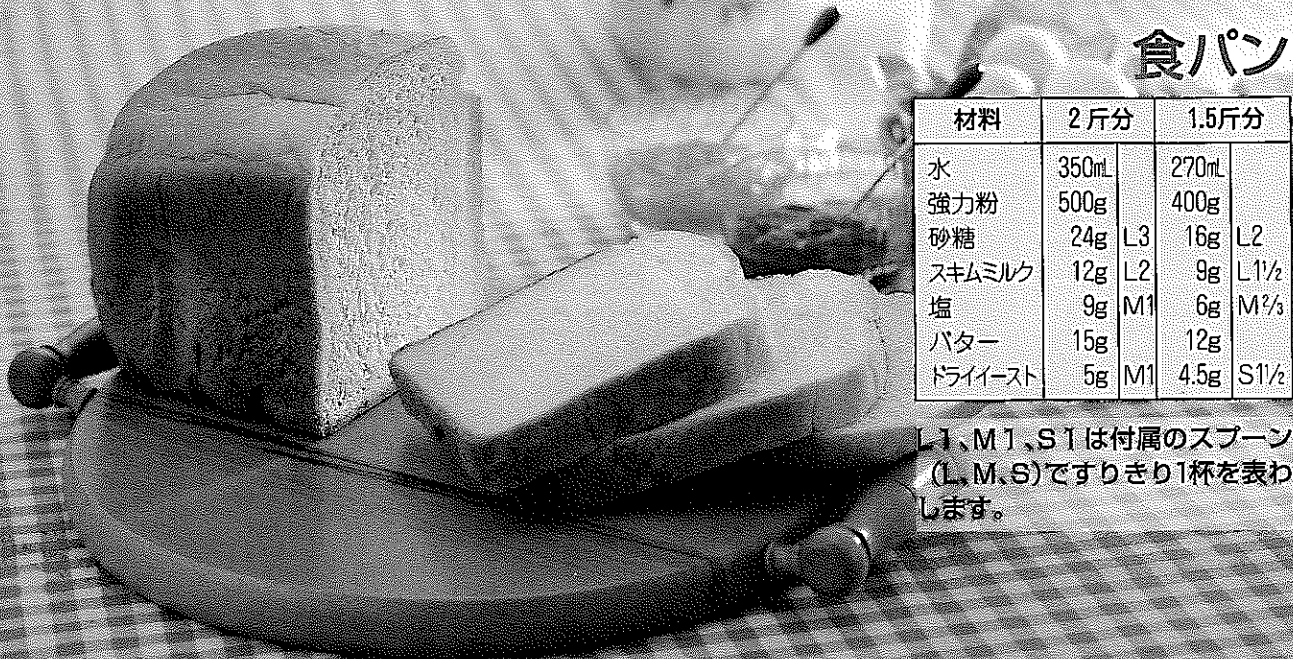 食パン
材料 2斤分 1.5斤分
水 350mL 270mL
強力粉 500g 400g
砂糖 24g L3 16g L2
スキムミルク 12g L2 9g L1½
塩 9g M1 6g M⅔
バター 15g 12g
ドライイースト 5g M1 4.5g S1½
L1、M1、S1は付属のスプーン
(L、M、S)ですりきり1杯を表わ
します。